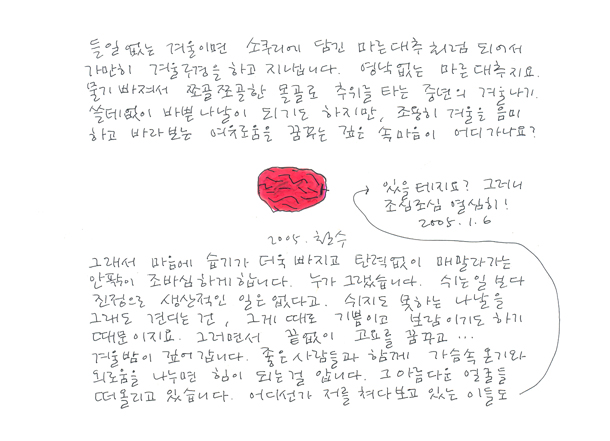 들일 없는 겨울이면 소쿠리에 담긴 마른대추처럼 되어서
가만히 겨울구경을 하고 지냅니다. 영낙없는 마른대추지요.
물기 빠져서 쪼골쪼골한 몰골로 추위를 타는 중년의 겨울나기.
쓸데없이 바쁜 나날이 되기도 하지만, 조용히 겨울을 음미
하고 바라보는 여유로움을 꿈꾸는 깊은 속마음이 어디가나요?
있을 테지요? 그러니
조심조심 열심히!
2005.1.6
2005. 철수
그래서 마음에 습기가 더욱 빠지고 탄력없이 메말라가는
안팎이 조바심하게 합니다. 누가 그랬습니다. 쉬는일 보다
진정으로 생산적인 일은 없다고. 쉬지도 못하는 나날을
그래도 견디는건, 그게 때로 기쁨이고 보람이기도 하기
때문이지요. 그러면서 끝없이 고요를 꿈꾸고 ...
겨울밤이 깊어갑니다. 좋은사람들과 함께 가슴속 온기와
외로움을 나누면 힘이 되는걸 압니다. 그 아름다운 얼굴들
떠올리고 있습니다. 어디선가 저를 쳐다보고 있는 이들도